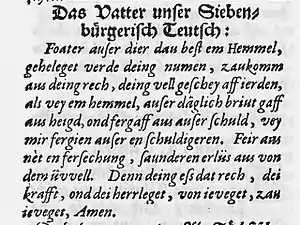 Das Vatter unser Sieben-
bürgerisch Teutsch:
Foater auſer dier dau beſt em Hemmel,
geheleget verde deing numen, zaukomm
aus deing rech, deing vell geſchey aff ierden,
als vey em hemmel, auſer däglich briut gaff
aus heigd, ond fergaff aus auſer ſchuld, vey
mir fergien auſer en ſchuldigeren. Feir aus
net en ferſechung, ſaunderen erlüs aus von
dem üvvell. Denn deing eſs dat rech, dei
krafft, ond dei herrleget, von ieveget, zau
ieveget, Amen.